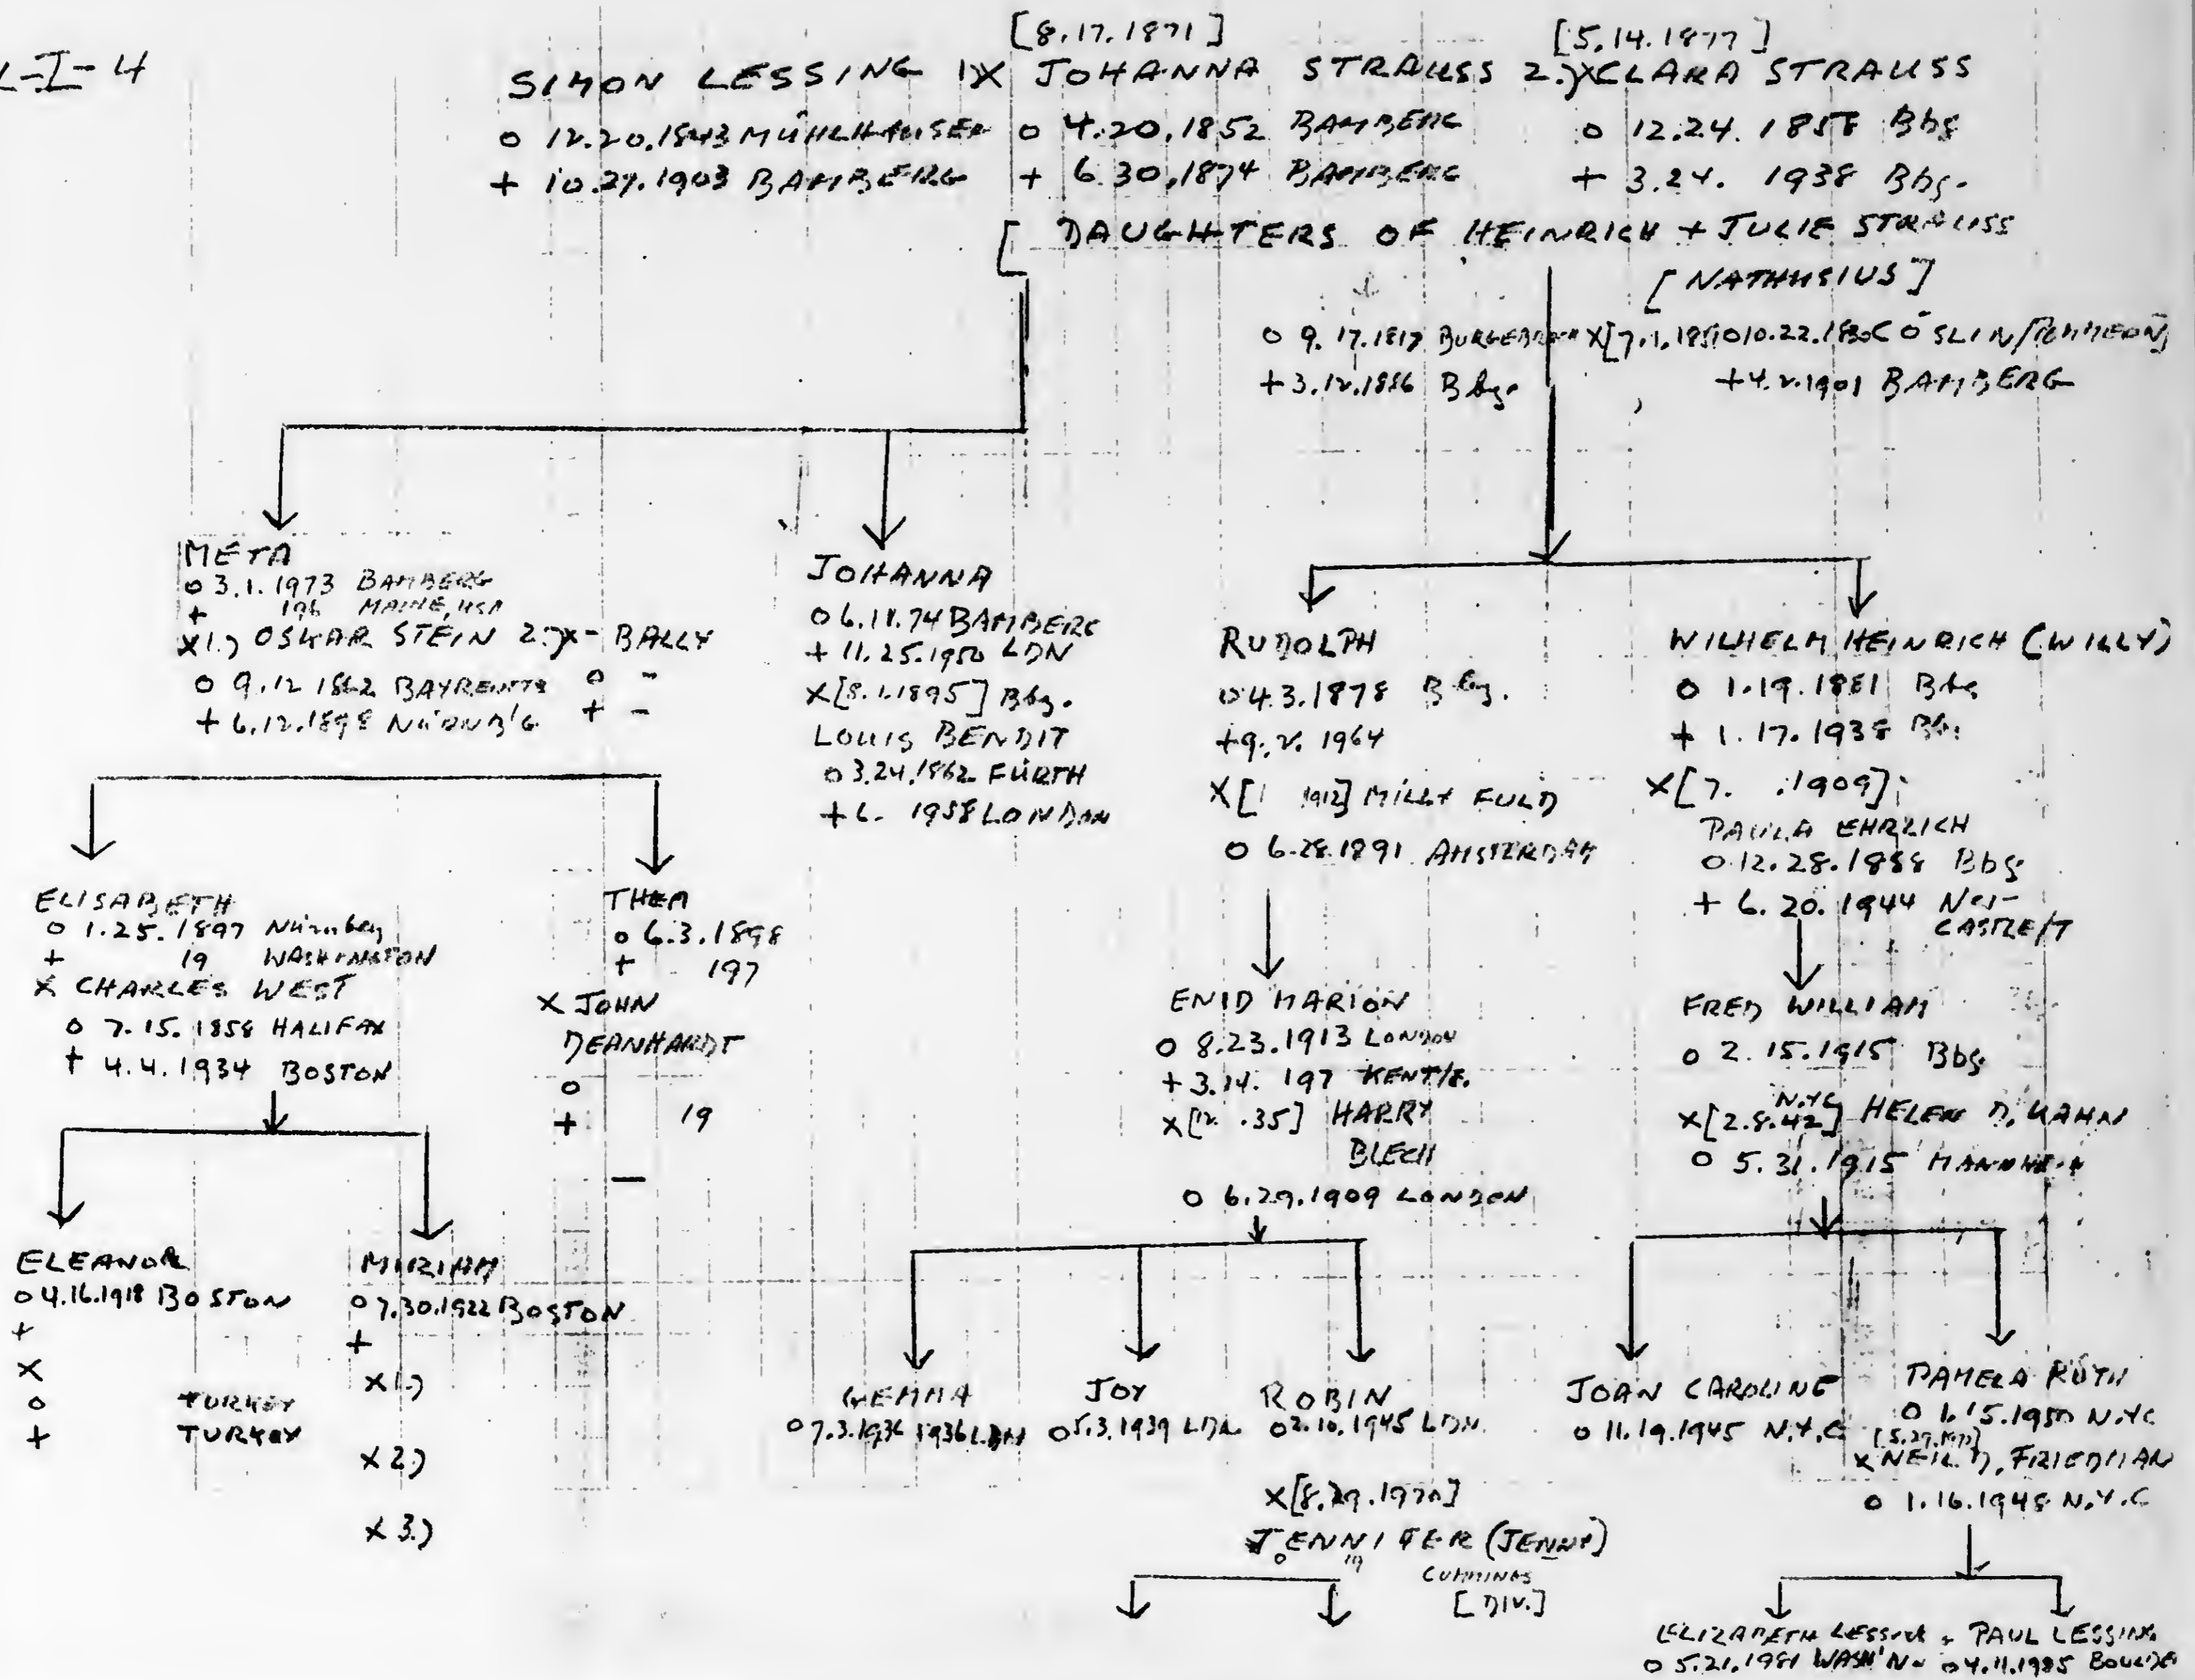 L-I-4
[8.17.1871] [5.14.1877]
SIMON LESSING 1X JOHANNA STRAUSS 2.)X CLARA STRAUSS
o 12.20.1843 MÜHLHAUSEN o 4.20.1852 BAMBERG o 12.24.1858 Bbg
+ 10.27.1903 BAMBERG + 6.30.1874 BAMBERG + 3.24. 1938 Bbg.
[ DAUGHTERS OF HEINRICH + JULIE STRAUSS
[NATHUSIUS]
o 9.17.1817 BURGEBRACH X[7.1.1851 o 10.22.1830 CÖSLIN/POMMERN]
+ 3.12.1886 Bbg. + 4.2.1901 BAMBERG
META
o 3.1.1973 BAMBERG
+ 196 MAINE, USA
X1.) OSKAR STEIN 2.)X - BALLY
o 9.12 1862 BAYREUTH o -
+ 6.12.1898 NÜRNB'G + -
JOHANNA
o 6.18.74 BAMBERG
+ 11.25.1950 LDN
X[8.1.1895] Bbg.
LOUIS BENDIT
o 3.24.1862 FÜRTH
+ 6. 1958 LONDON
RUDOLPH
o 4.3.1878 Bbg.
+ 9.2. 1964
X[1 1912] MILLY FULD
o 6.28.1891 AMSTERDAM
WILHELM HEINRICH (WILLY)
o 1.19.1881 Bbg
+ 1.17.1938 Bbg
X[7. .1909]
PAULA EHRLICH
o 12.28.1888 Bbg
+ 6.20.1944 NEW-
CASTLE/T
ELISABETH
o 1.25.1897 Nürnberg
+ 19 WASHINGTON
X CHARLES WEST
o 7.15.1858 HALIFAX
+ 4.4.1934 BOSTON
THEA
o 6.3.1898
+ 197
X JOHN
DEANHARDT
o
+ 19
—
ENID MARION
o 8.23.1913 LONDON
+ 3.14. 197 KENT/E.
X[12. .35] HARRY
BLECH
o 6.29.1909 LONDON
FRED WILLIAM
o 2.15.1915 Bbg
N.YC
X[2.8.42] HELEN D. KAHN
o 5.31.1915 MANNHEIM
ELEANOR
o 4.16.1918 BOSTON
+
X
o TURKEY
+ TURKEY
MIRIAM
o 7.30.1922 BOSTON
+
X1.)
X2.)
X3.)
GEMMA
o 7.3.1936 1936 LDN
JOY
o 5.3.1939 LDN.
ROBIN
o 2.10.1945 LDN.
X[8.29.1970]
JENNIFER (JENNY)
o 19 CUMMINGS
[DIV.]
JOAN CAROLINE
o 11.19.1945 N.Y.C
PAMELA RUTH
o 1.15.1950 N.YC
X NEIL D. FRIEDMAN
o 1.16.1948 N.Y.C
ELIZABETH LESSING + PAUL LESSING
o 5.21.1981 WASH'N. o 4.11.1985 BOULDER